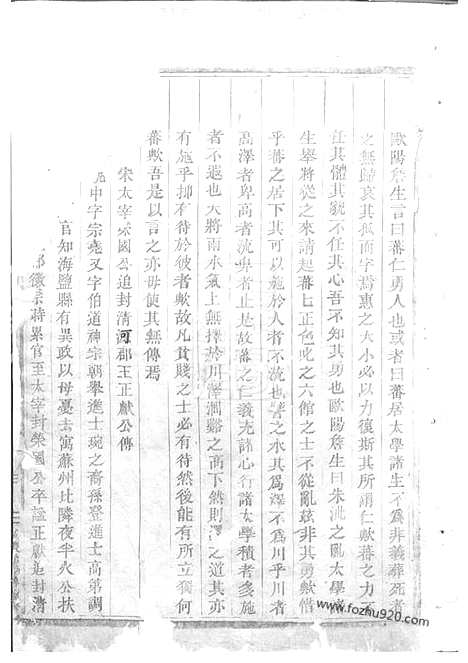 歐陽詹生言曰蕃仁勇人也或者曰蕃居太學諸生不為非義葬死者
之無歸哀其孤而字焉惠之大小必以力復斯其所謂仁歟蕃之力不
任其體其貌不任其心吾不知其勇也歐陽詹生曰朱泚之亂太學諸
生舉將從之來請起蕃蕃正色叱之六館之士不從亂茲非其勇歟惜
乎蕃之居下其可以施於人者不流也譬之水其為澤不為川乎川者
高澤者卑高者流卑者止是故蕃之仁義充諸心行諸太學積者多施
者不遐也天將雨水氣上無擇於川澤澗谿之高下然則澤之道其亦
有施乎抑有待於彼者歟故凡貧賤之士必有待然後能有所立獨何
蕃歟吾是以言之亦毋使其無傳焉
宋太宰榮國公追封清河郡王正獻公傳
中字宗堯又字伯道神宗朝舉進士琬之裔孫登進士高第調
官知海鹽縣有異政以母憂去寓蘇州比隣夜半火公扶
徽宗時累官至太宰封榮國公卒謚正獻追封清
www.fozhu920.com